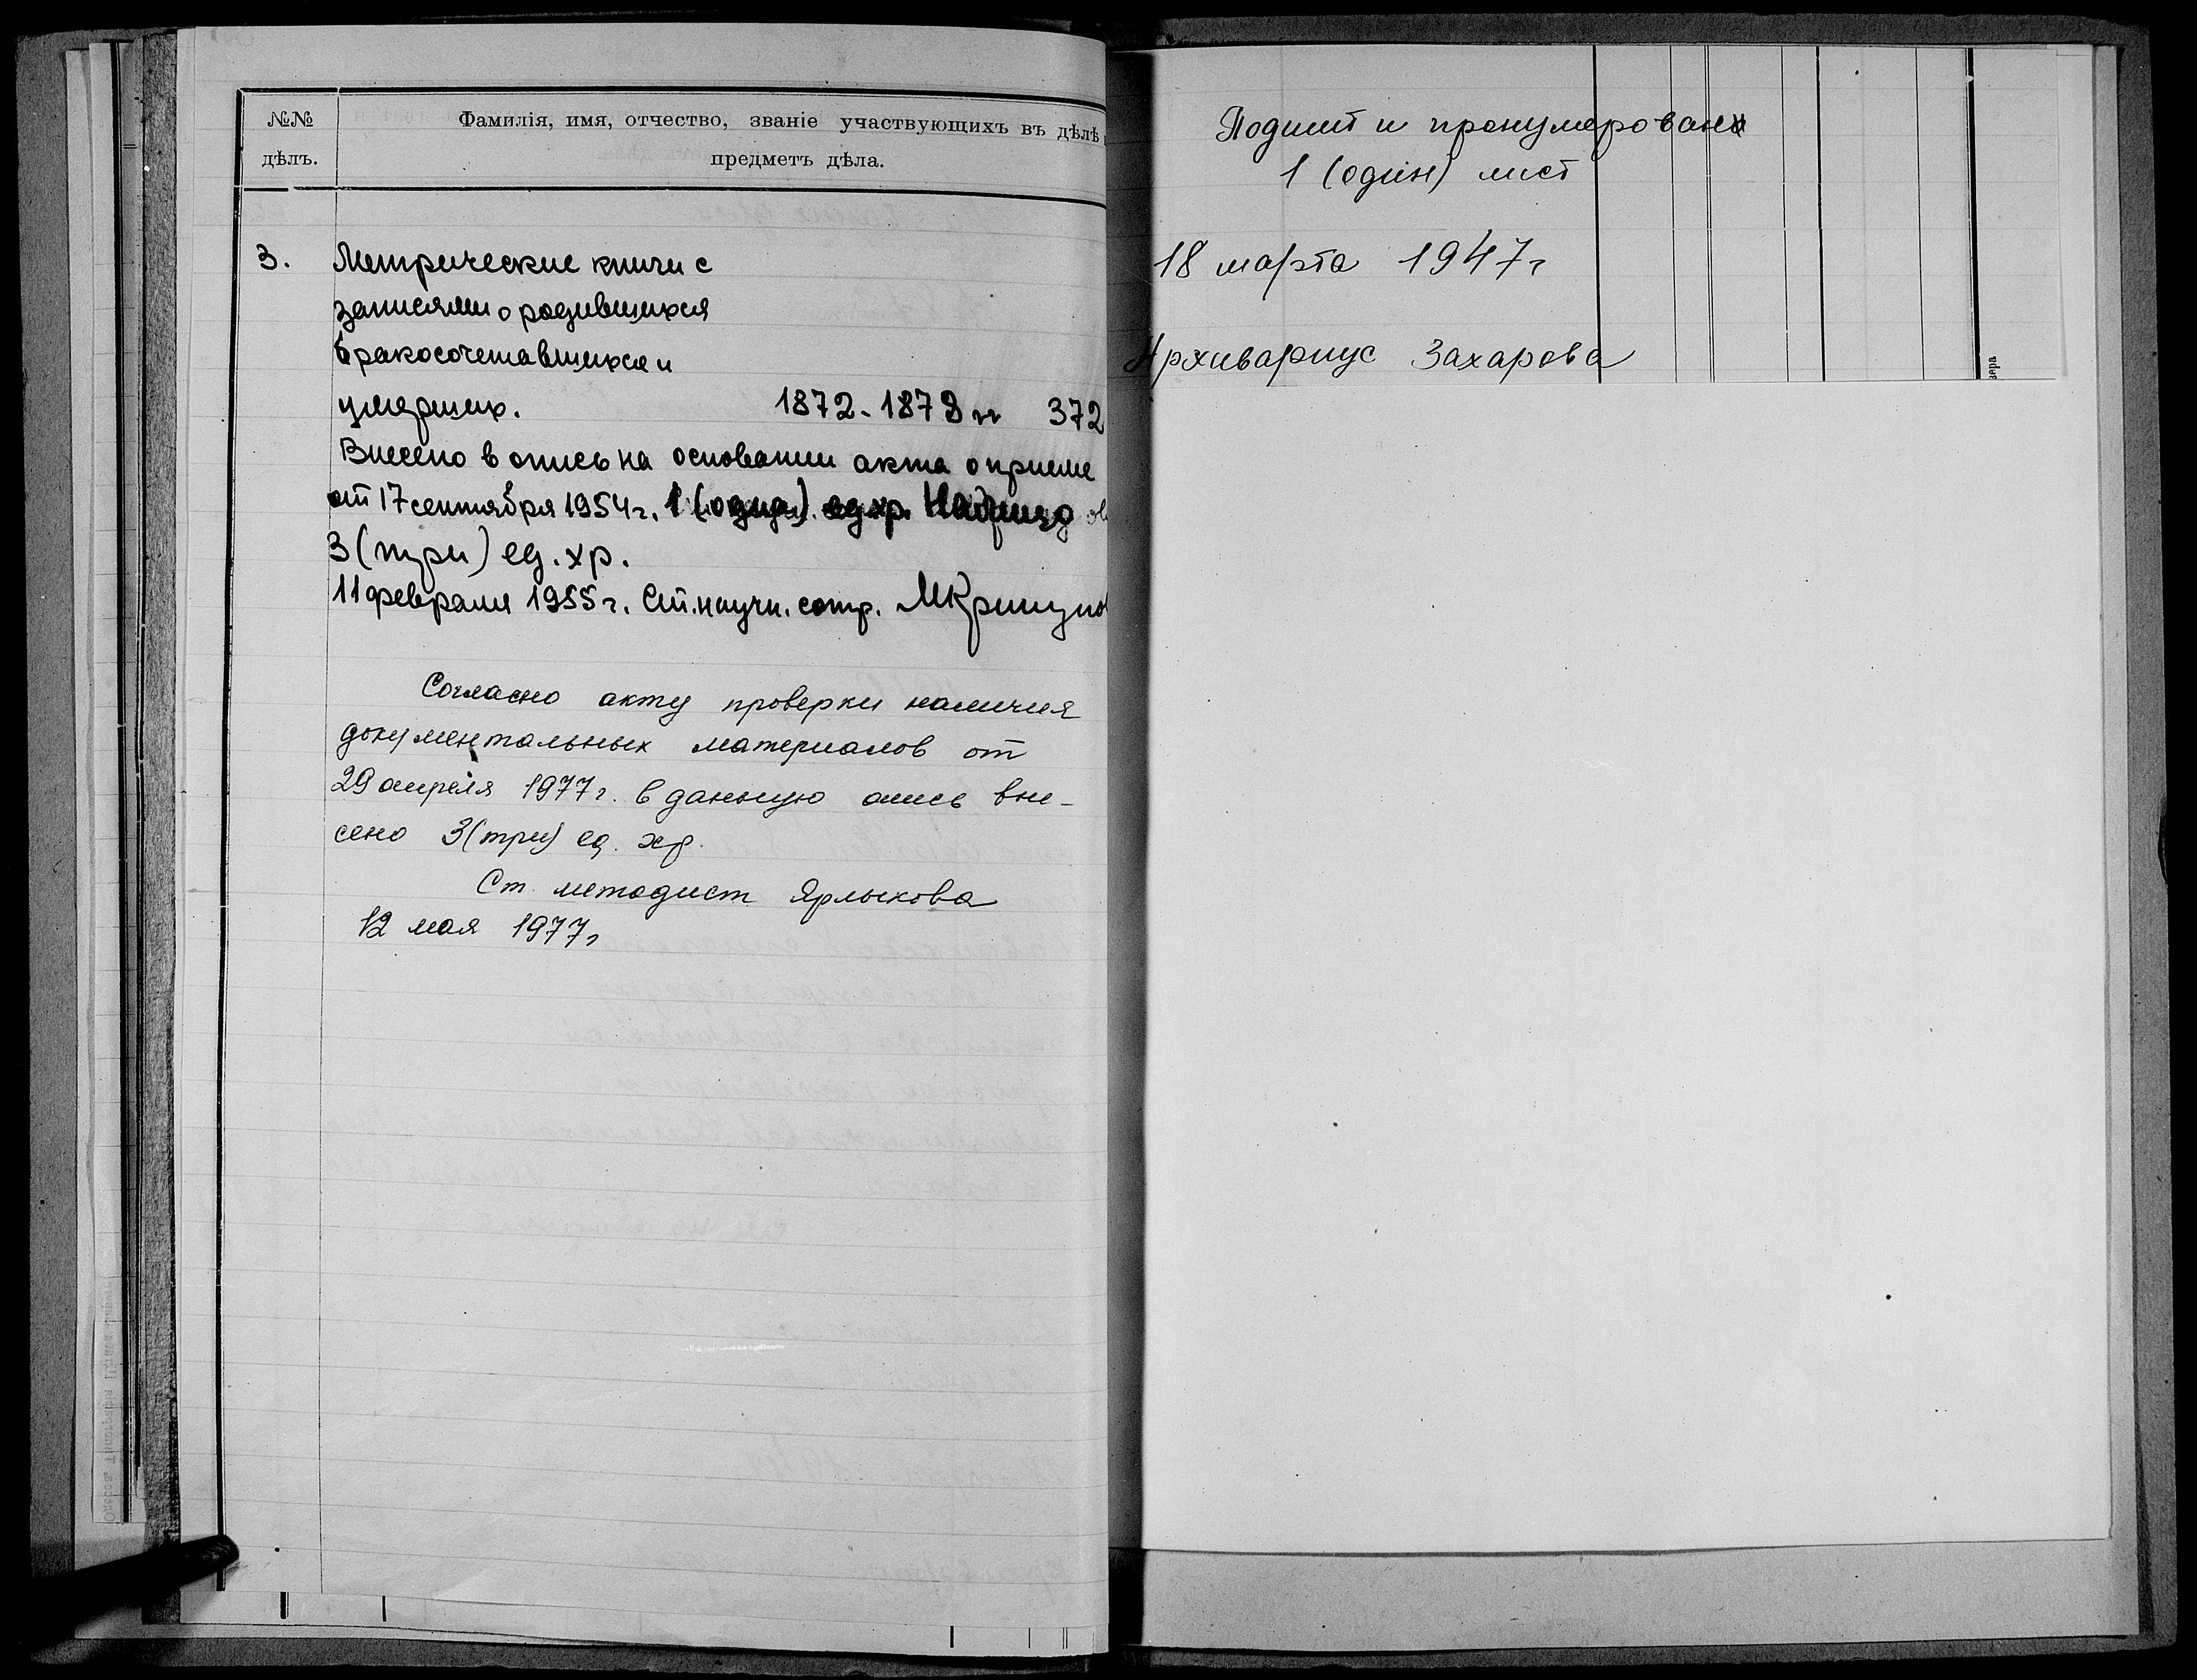 №№ дѣлъ.
Фамилія, имя, отчество, званіе участвующихъ въ дѣлѣ
предметъ дѣла.
3. Метрические книги с
записями о родившихся
бракосочетавшихся и
умерших. 1872-1878 гг 372
Внесено в опись на основании акта о приеме
от 17 сентября 1954 г. 1 (одна) ед. хр.
3 (три) ед. хр.
11 февраля 1955 г. Ст. научн. сотр.
Согласно акту проверки наличия
документальных материалов от
29 апреля 1977 г. в данную опись вне-
сено 3 (три) ед. хр.
Ст. методист Ярлыкова
12 мая 1977 г
Подшит и пронумерован
1 (один) лист
18 марта 1947 г
Архивариус Захарова